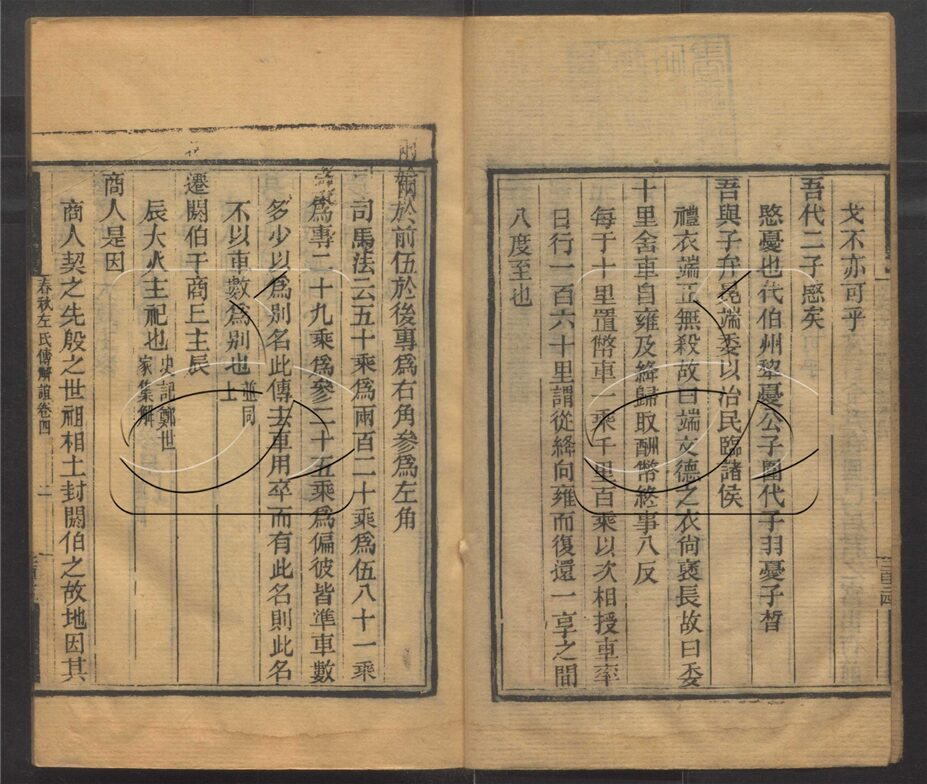 戈不亦可乎
吾代二子愍矣
愍憂也代伯州犂憂公子圍代子羽憂子晳
吾與子弁冕端委以治民臨諸侯
禮衣端正無殺故曰端文德之衣尚褒長故曰委
十里舍車自雍及絳歸取酬幣終事八反
每于十里置幣車一乘千里百乘以次相授車率
日行一百六十里謂從絳向雍而復還一享之間
八度至也
於前伍於後專爲右角參爲左角
司馬法云五十乘爲兩百二十乘爲伍八十一乘
爲專二十九乘爲參二十五乘爲偏彼皆準車數
多少以爲別名此傳去車用卒而有此名則此名
不以車數爲別也並同上
遷閼伯于商丘主辰
辰大火主祀也史記鄭世家集解
商人是因
商人契之先殷之世祖相土封閼伯之故地因其
春秋左氏傳解誼卷四